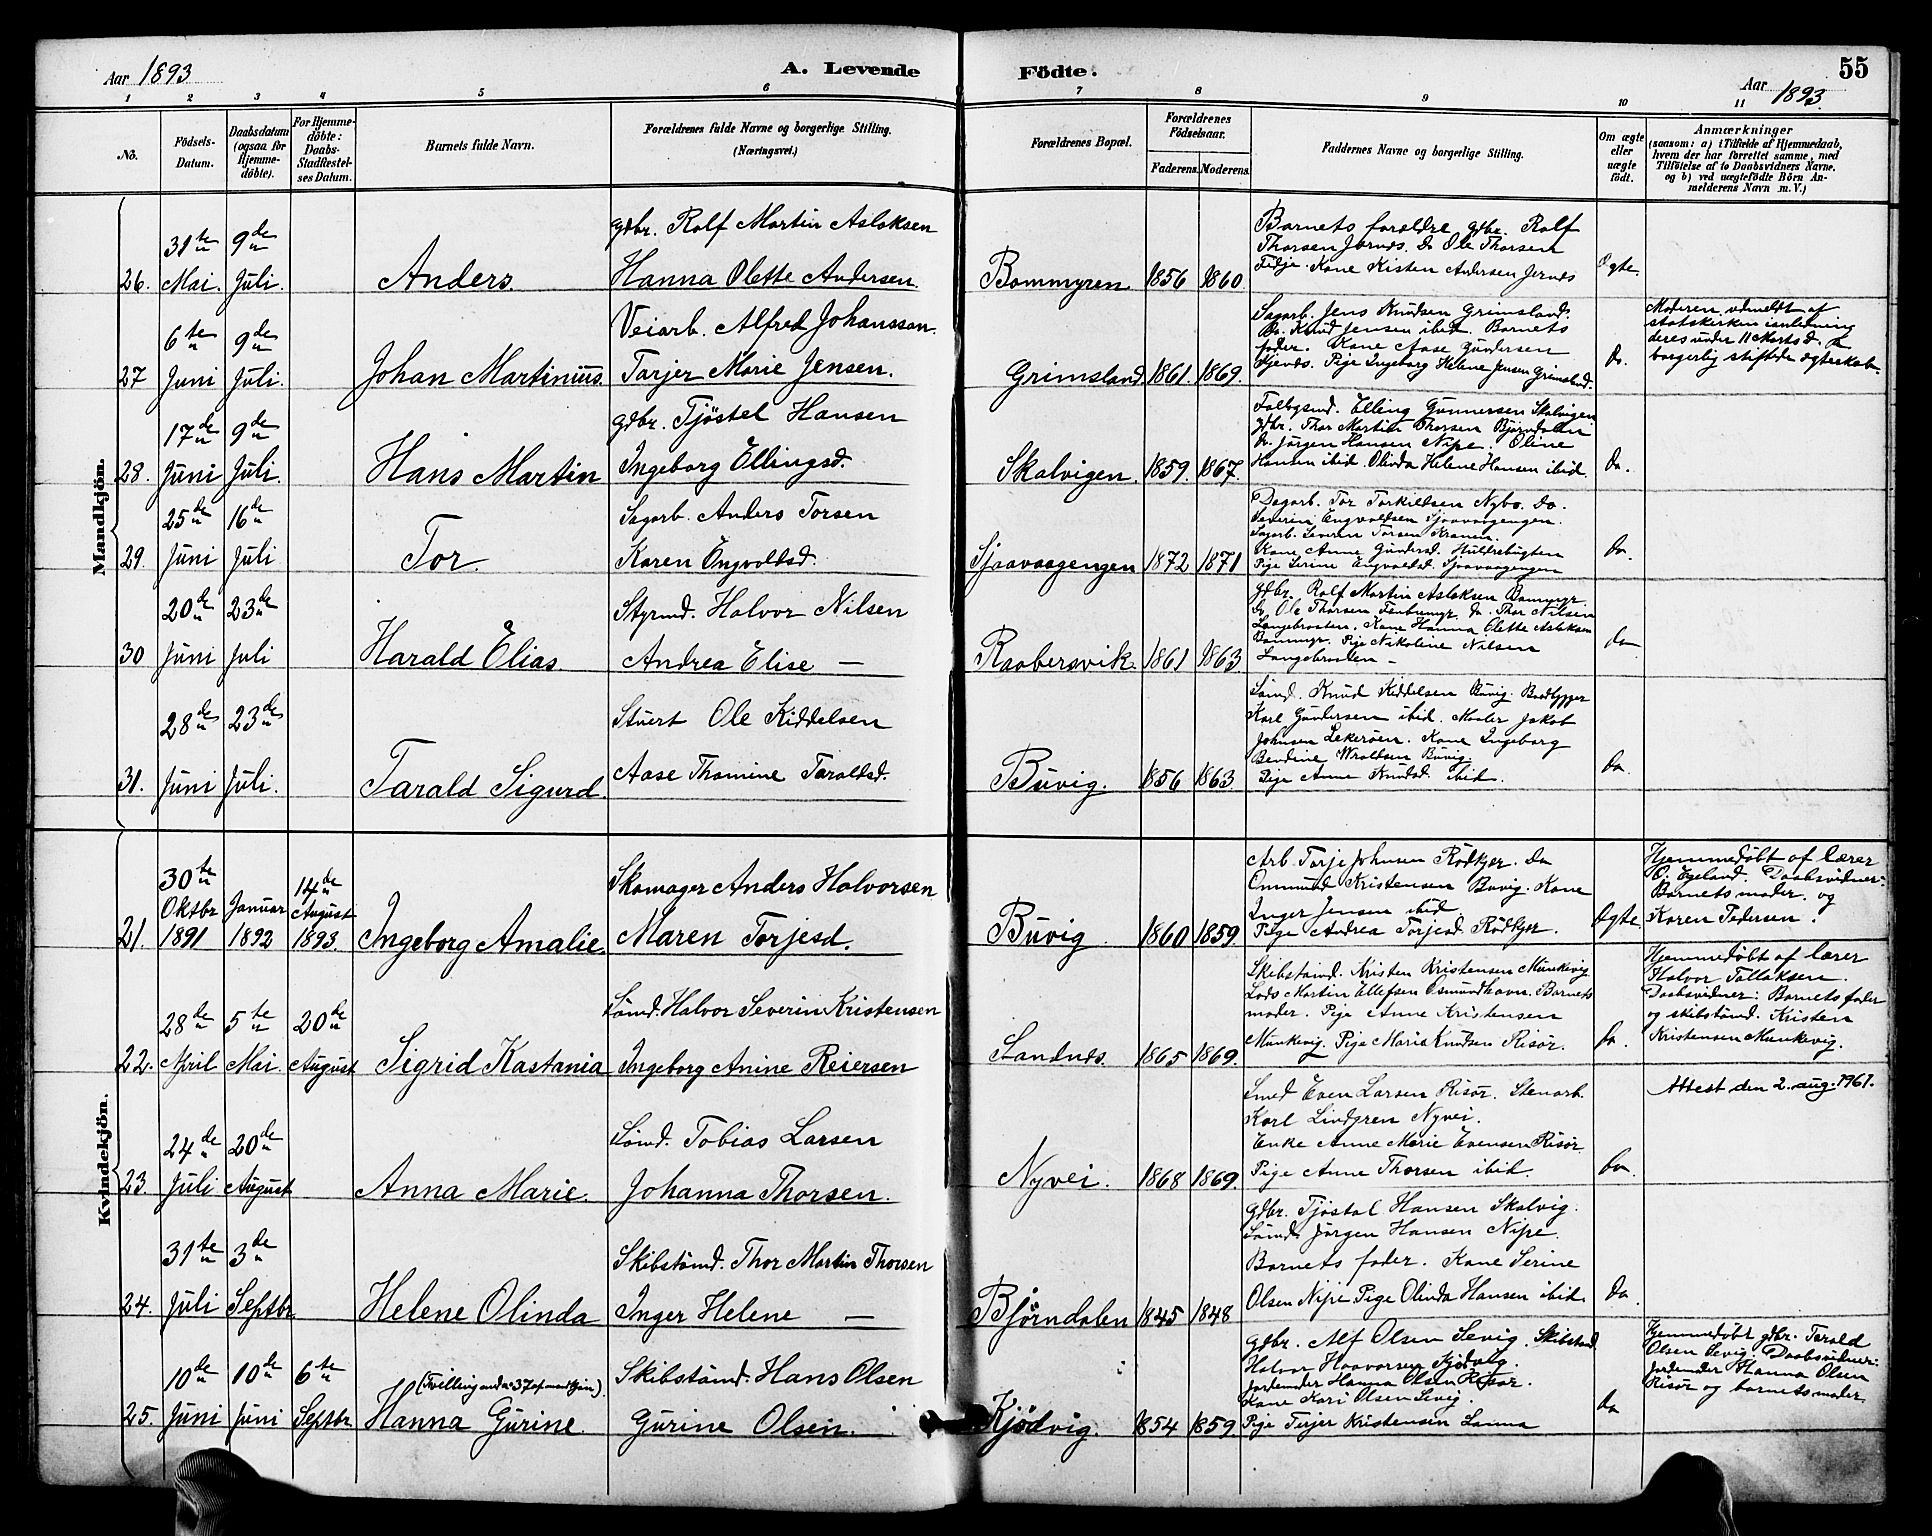 Aar 1893
A. Levende
Födte.
55
Aar 1893
1 2 3 4 5 6 7 8 9 10 11
No.
Födsels-
Datum.
Daabsdatum
(ogsaa for
Hjemme-
döbte).
For Hjemme-
döbte:
Daabs-
Stadfæstel-
ses Datum.
Barnets fulde Navn.
Forældrenes fulde Navne og borgerlige Stilling.
(Næringsvei.)
Forældrenes Bopæl.
Forældrenes
Födselsaar.
Faderens. Moderens.
Faddernes Navne og borgerlige Stilling.
Om ægte
eller
uægte
født.
Anmærkninger
(saasom: a) i Tilfælde af Hjemmedaab,
hvem der har forrettet samme, med
Tilföielse af to Daabsvidners Navne.
og b) ved uægtefödte Börn An-
melderens Navn m. V.)
Mandkjön.
26. 31te Mai. 9de Juli.
Anders.
gdbr. Rolf Martin Aslaksen
Hanna Olette Andersen.
Bommyren 1856 1860
Barnets forældre gdbr. Rolf
Thorsen Jernæs. Do Ole Thorsen
Kone Kisten Andersen Jernæs
Ægte.
27 6te Juni 9de Juli.
Johan Martinius.
Veiarb. Alfred Johansson.
Tarjer Marie Jensen.
Grimsland 1861. 1869.
Sagarb. Jens Knudsen Grimsland.
Do. Knud Jensen ibid. Barnets
fader. Kone Aase Gundersen
Pige Ingeborg Helene Jensen Grimsland.
Do.
Moderen udmeldt af
statskirken i anledning
deres under 11 Marts d. a.
borgerlig stiftede ægteskab.
28. 17de Juni 9de Juli.
Hans Martin
gdbr. Tjöstel Hansen
Ingeborg Ellingsd.
Skalvigen. 1859. 1867.
Elling Gunnersen Skalvigen
gdbr. Thor Martin Thorsen Björndalen
Do. Jørgen Hansen Nipe. Oline
Hansen ibid. Olinda Helene Hansen ibid.
Do.
29. 25de Juni 16de Juli
Tor.
Sagarb. Anders Torsen
Karen Engvoldsd.
Sjaavaagengen 1872 1871
Dagarb. Tor Torkildsen Nybo. Do.
Severin Engvoldsen Sjaavaagengen.
Sagarb. Severin Torsen
Kone Anne Gundersd.
Pige Serine Engvoldsd Sjaavaagengen
Do
30 20de Juni 23de Juli
Harald Elias.
Styrmd. Halvor Nilsen
Andrea Elise —
Raabersvik. 1861 1863
gdbr. Rolf Martin Aslaksen Bommyr.
Do. Ole Thorsen Do. Thor Nilsen
Langebraaten. Kone Hanna Olette Aslaksen
Bommyr. Pige Nikoline Nilsen
Langebraaten —
do
31. 28de Juni 23de Juli.
Tarald Sigurd.
Stuert Ole Kiddelsen
Aase Thomine Taraldsd.
Buvig. 1856 1863.
Sömd. Knud Kiddelsen Buvig. Baadbygger
Karl Gundersen ibid. Maaler Jakob
Johnsen Lekeröen. Kone Ingeborg
Berdine Wroldsen Buvig.
Pige Anne Knudsd. ibid.
Do.
Kvindekjön.
21. 30te Oktbr 1891 Januar 1892 14de August 1893.
Ingeborg Amalie.
Skomager Anders Halvorsen
Maren Torjesd.
Buvig 1860 1859.
Arb. Torje Johnsen Rödkjær. Do
Ommund Kristensen Buvig. Kone
Inger Jensen ibid
Pige Andrea Torjesd. Rödkjær.
Ægte.
Hjemmedøbt af lærer
O. Egeland. Daabsvidner:
Barnets moder. og
Karen Pedersen.
22. 28de April 5te Mai. 20de August
Sigrid Kastania
Sömd. Halvor Severin Kristensen
Ingeborg Anine Reiersen
Sandnæs. 1865 1869.
Skibstömd. Kristen Kristensen Munkevig
Lods Martin Ellefsen Osmundhavn. Barnets
moder. Pige Anne Kristensen
Munkevig. Pige Maria Knudsen Risør.
Do.
Hjemmedøbt af lærer
Halvor Tallaksen.
Daabsvidner: Barnets fader
og skibstömd. Kristen
Kristensen Munkevig.
23. 24de Juli 20de August
Anna Marie.
Sömd. Tobias Larsen
Johanna Thorsen.
Nyvei. 1868 1869.
Smed Even Larsen Risør. Stenarb.
Karl Lindgren Nyvei.
Enke Anne Marie Evensen Risør.
Pige Anne Thorsen ibid.
Do.
Attest den 2. aug. 1961.
24. 31te Juli 3de Septbr
Helene Olinda
Skibstömd. Thor Martin Thorsen
Inger Helene —
Bjørndalen 1845 1848
gdbr. Tjöstal Hansen Skalvig.
Sömd. Jørgen Hansen Nipe.
Barnets fader. Kone Serine
Olsen Nipe Pige Olinda Hansen ibid.
Do.
25. 10de Juni 10de Juni 6te Septbr
(Tvilling med no 37 af mandkjön).
Hanna Gurine.
Skibstömd. Hans Olsen
Gurine Olsen.
Kjødvig. 1854 1859
gdbr. Alf Olsen Sevig. Skibstmd
Halvor Haavorsen Kjødvig.
Jordemoder Hanna Olsen Risør.
Kone Kari Olsen Sevig.
Pige Terjer Kristensen Sanna
do
Hjemmedøbt gdbr. Tarald
Olsen Sevig. Daabsvidner:
Jordemoder Hanna Olsen
Risør og barnets moder